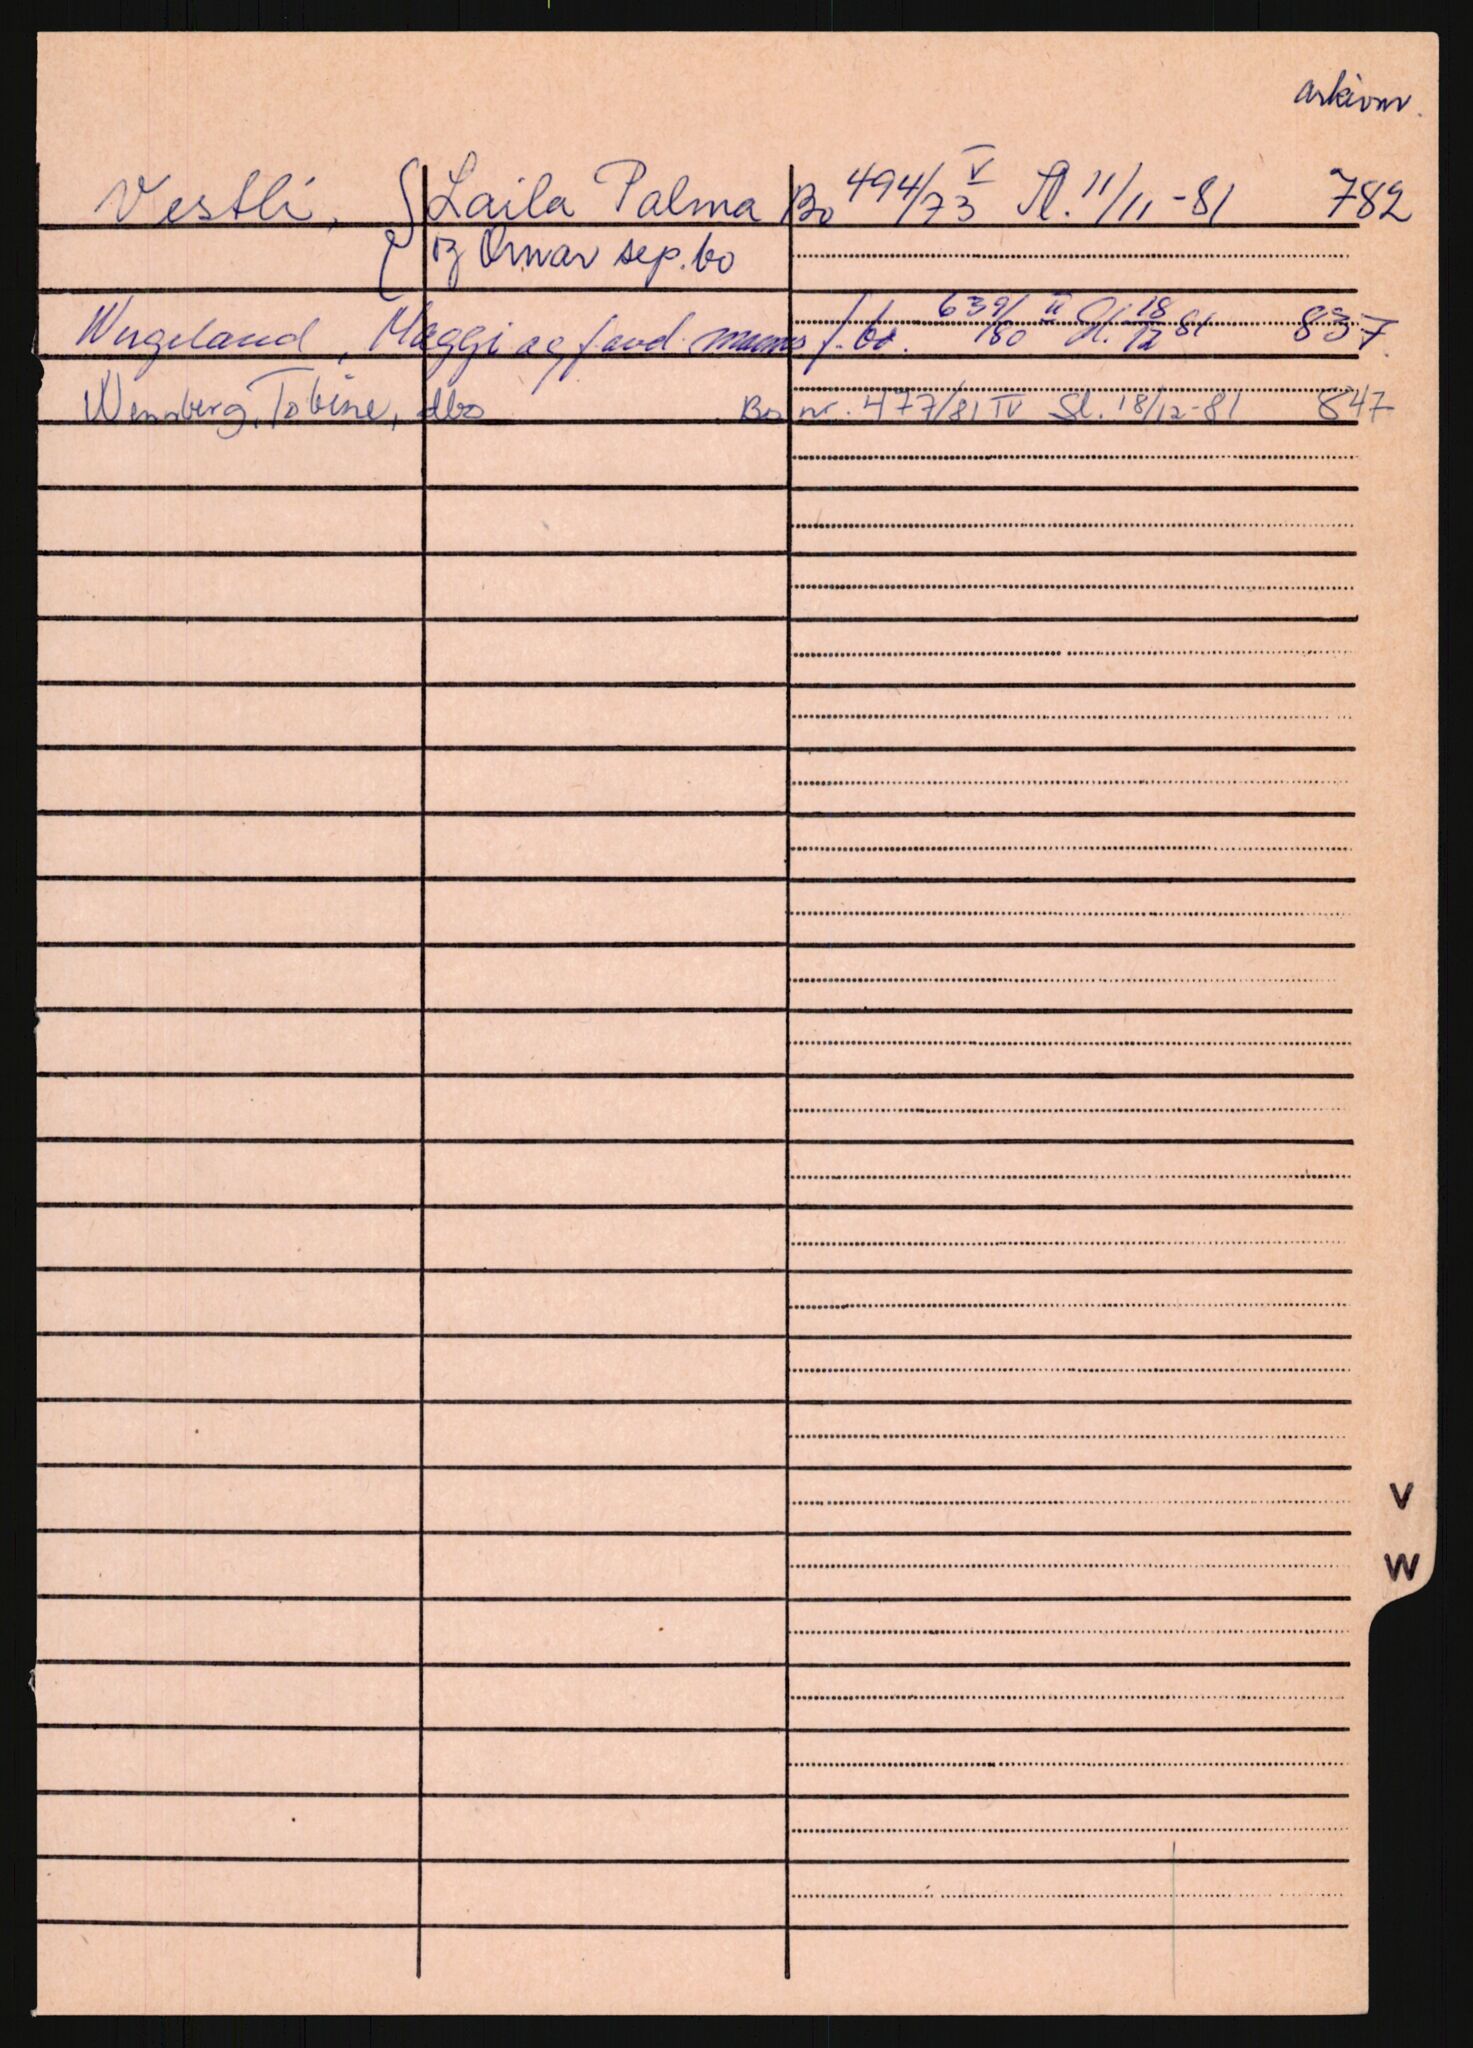 arkivnr.
Vestli, { Laila Palma Bo 494/73 V Sl. 11/11-81 782
{ og Ornar sep.bo
Wergeland, Maggi og favd. manns f.bo. 639/80 II Sl. 18/12 81 837.
Wennberg, Tobine, dbo Bo nr. 477/81 IV Sl. 18/12-81 847
V
W